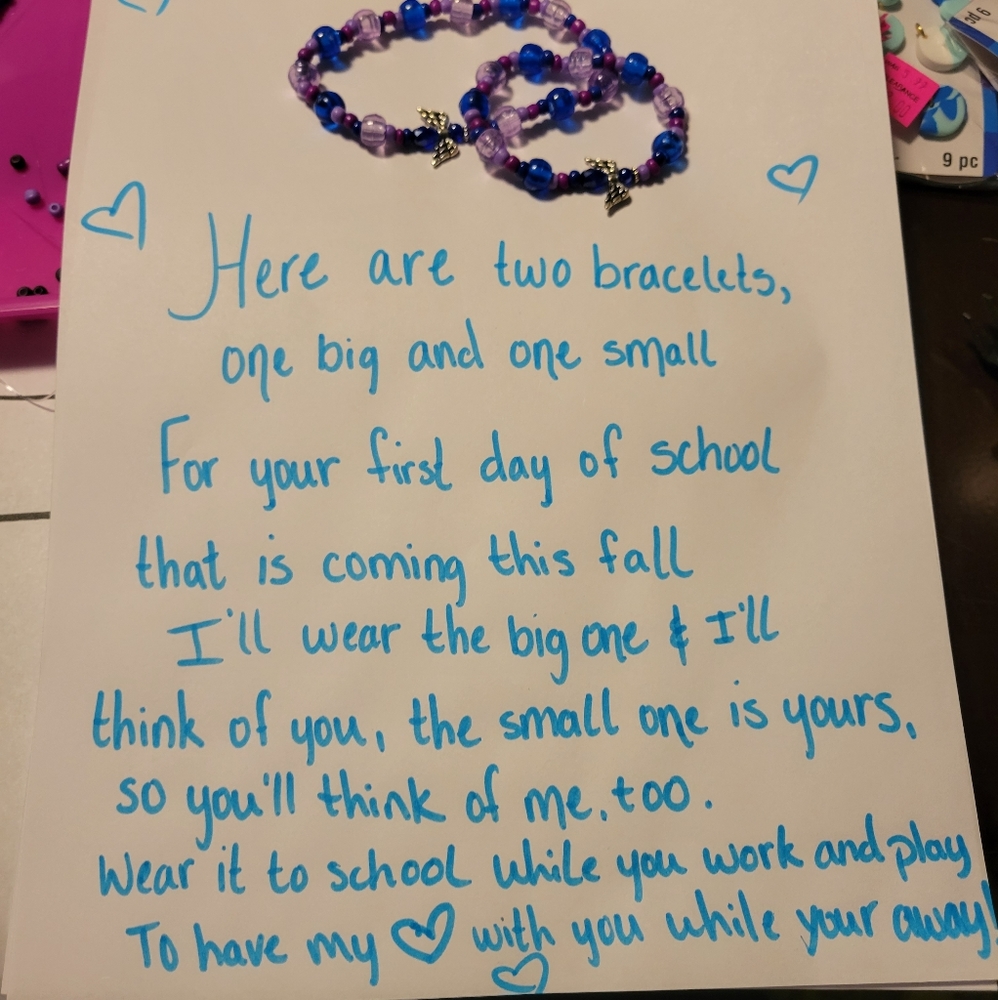 3d 6
9 pc
Here are two bracelets,
one big and one small
For your first day of school
that is coming this fall
I'll wear the big one & I'll
think of you, the small one is yours,
so you'll think of me, too.
Wear it to school while you work and play
To have my ♡ with you while your away!